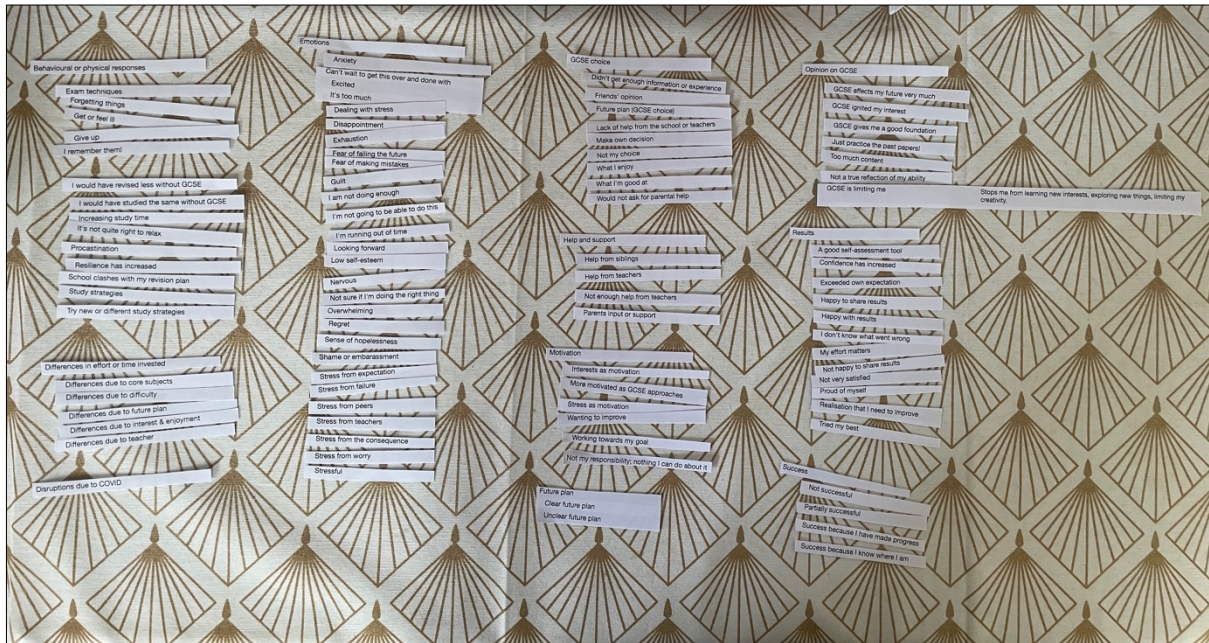 Behavioural or physical responses
Exam techniques
Forgetting things
Get or feel ill
Give up
I remember them!
I would have revised less without GCSE
I would have studied the same without GCSE
Increasing study time
It's not quite right to relax
Procastination
Resilience has increased
School clashes with my revision plan
Study strategies
Try new or different study strategies
Differences in effort or time invested
Differences due to core subjects
Differences due to difficulty
Differences due to future plan
Differences due to interest & enjoyment
Differences due to teacher
Disruptions due to COVID
Emotions
Anxiety
Can't wait to get this over and done with
Excited
It's too much
Dealing with stress
Disappointment
Exhaustion
Fear of failing the future
Fear of making mistakes
Guilt
I am not doing enough
I'm not going to be able to do this
I'm running out of time
Looking forward
Low self-esteem
Nervous
Not sure if I'm doing the right thing
Overwhelming
Regret
Sense of hopelessness
Shame or embarassment
Stress from expectation
Stress from failure
Stress from peers
Stress from teachers
Stress from the consequence
Stress from worry
Stressful
GCSE choice
Didn't get enough information or experience
Friends' opinion
Future plan (GCSE choice)
Lack of help from the school or teachers
Make own decision
Not my choice
What I enjoy
What I'm good at
Would not ask for parental help
Help and support
Help from siblings
Help from teachers
Not enough help from teachers
Parents input or support
Motivation
Interests as motivation
More motivated as GCSE approaches
Stress as motivation
Wanting to improve
Working towards my goal
Not my responsibility; nothing I can do about it
Future plan
Clear future plan
Unclear future plan
Opinion on GCSE
GCSE affects my future very much
GCSE ignited my interest
GSCE gives me a good foundation
Just practice the past papers!
Too much content
Not a true reflection of my ability
GCSE is limiting me
Stops me from learning new interests, exploring new things, limiting my
creativity.
Results
A good self-assessment tool
Confidence has increased
Exceeded own expectation
Happy to share results
Happy with results
I don't know what went wrong
My effort matters
Not happy to share results
Not very satisfied
Proud of myself
Realisation that I need to improve
Tried my best
Success
Not successful
Partially successful
Success because I have made progress
Success because I know where I am